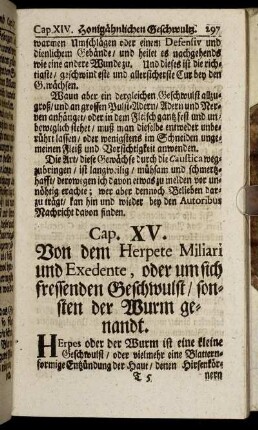 Cap. XIV. Honigähnlichen Geschwulz. 297
warmen Umschlägen oder einen Defensiv und
dienlichem Gebände/ und heilet es nachgehends
wie eine andere Wunde zu. Und dieses ist die rich-
tigste/ geschwindeste und allersicherste Cur bey den
Gewächsen.
Wann aber ein dergleichen Geschwulst allzu
groß/ und an grossen Puls-Adern/ Adern und Ner-
ven anhänget/ oder in dem Fleisch gantz fest und un-
beweglich stehet/ muß man dieselbe entweder unbe-
rührt lassen/ oder wenigstens im Schneiden unge-
meinen Fleiß und Vorsichtigkeit anwenden.
Die Art/ diese Gewächse durch die Caustica weg-
zubringen/ ist langweilig/ mühsam und schmertz-
hafft/ derowegen ich davon etwas zu melden vor un-
nöthig erachte; wer aber dennoch Belieben dar-
zu trägt/ kan hin und wieder bey den Autoribus
Nachricht davon finden.
Cap. XV.
Von dem Herpete Miliari
und Exedente, oder um sich
fressenden Geschwulst/ son-
sten der Wurm ge-
nandt.
Herpes oder der Wurm ist eine kleine
Geschwulst/ oder vielmehr eine Blattern-
formige Entzündung der Haut/ denen Hirsenkör-
T 5 nern